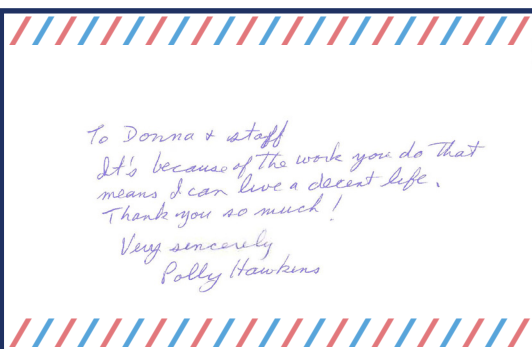 To Donna + staff
It's because of the work you do that
means I can live a decent life.
Thank you so much!
Very sincerely
Polly Hawkins